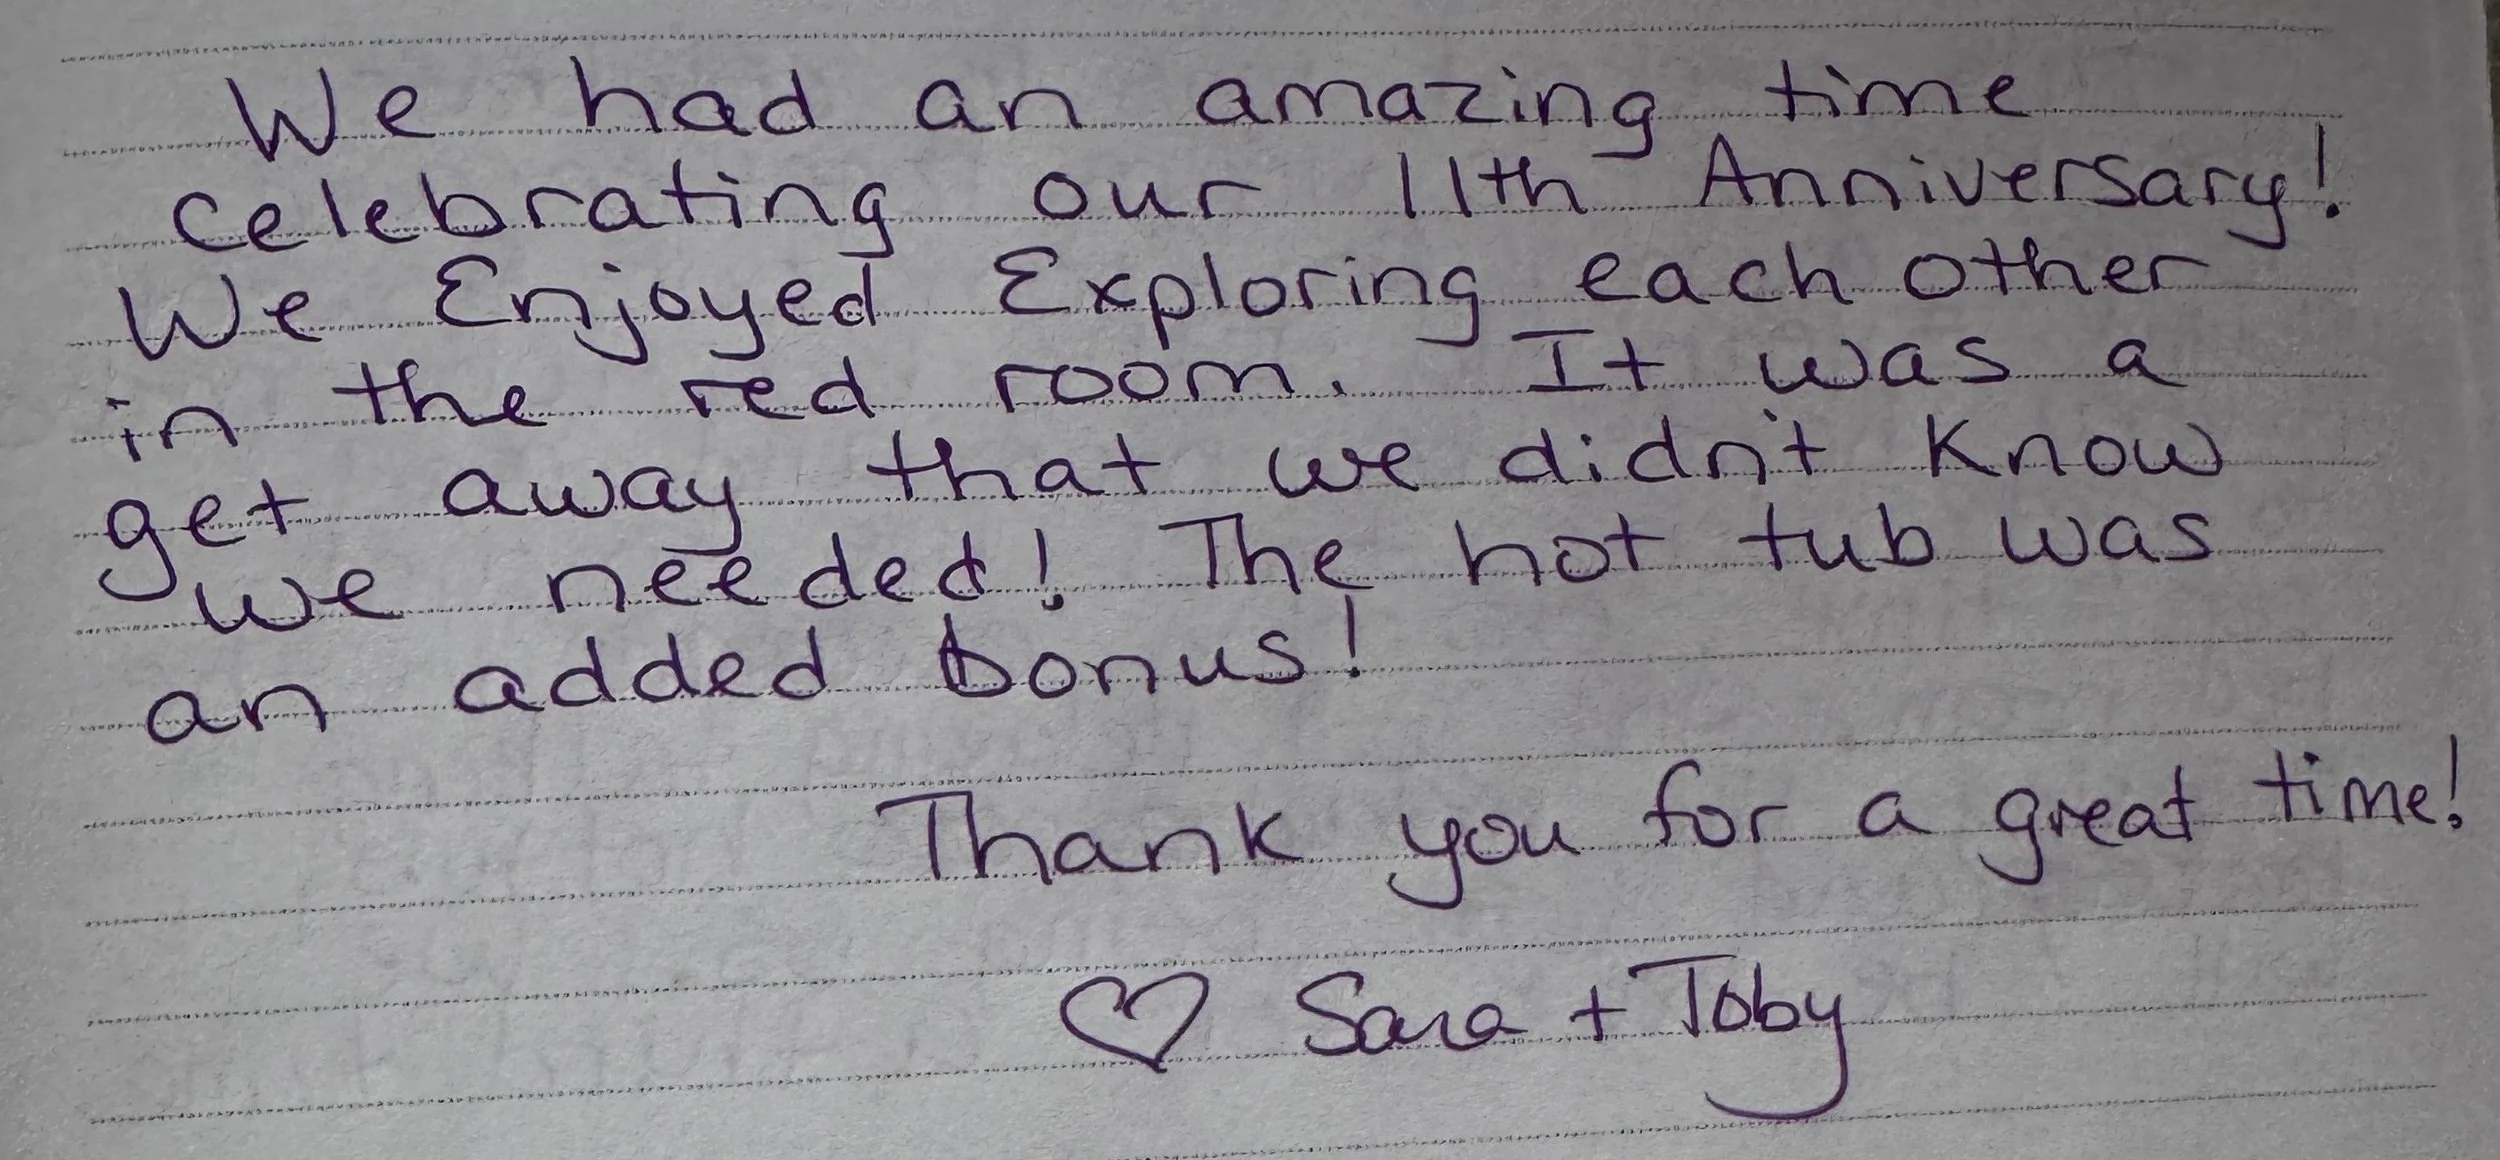 We had an amazing time
celebrating our 11th Anniversary!
We Enjoyed Exploring each other
in the red room. It was a
get away that we didn't know
we needed! The hot tub was
an added bonus!
Thank you for a great time!
♡ Sara + Toby